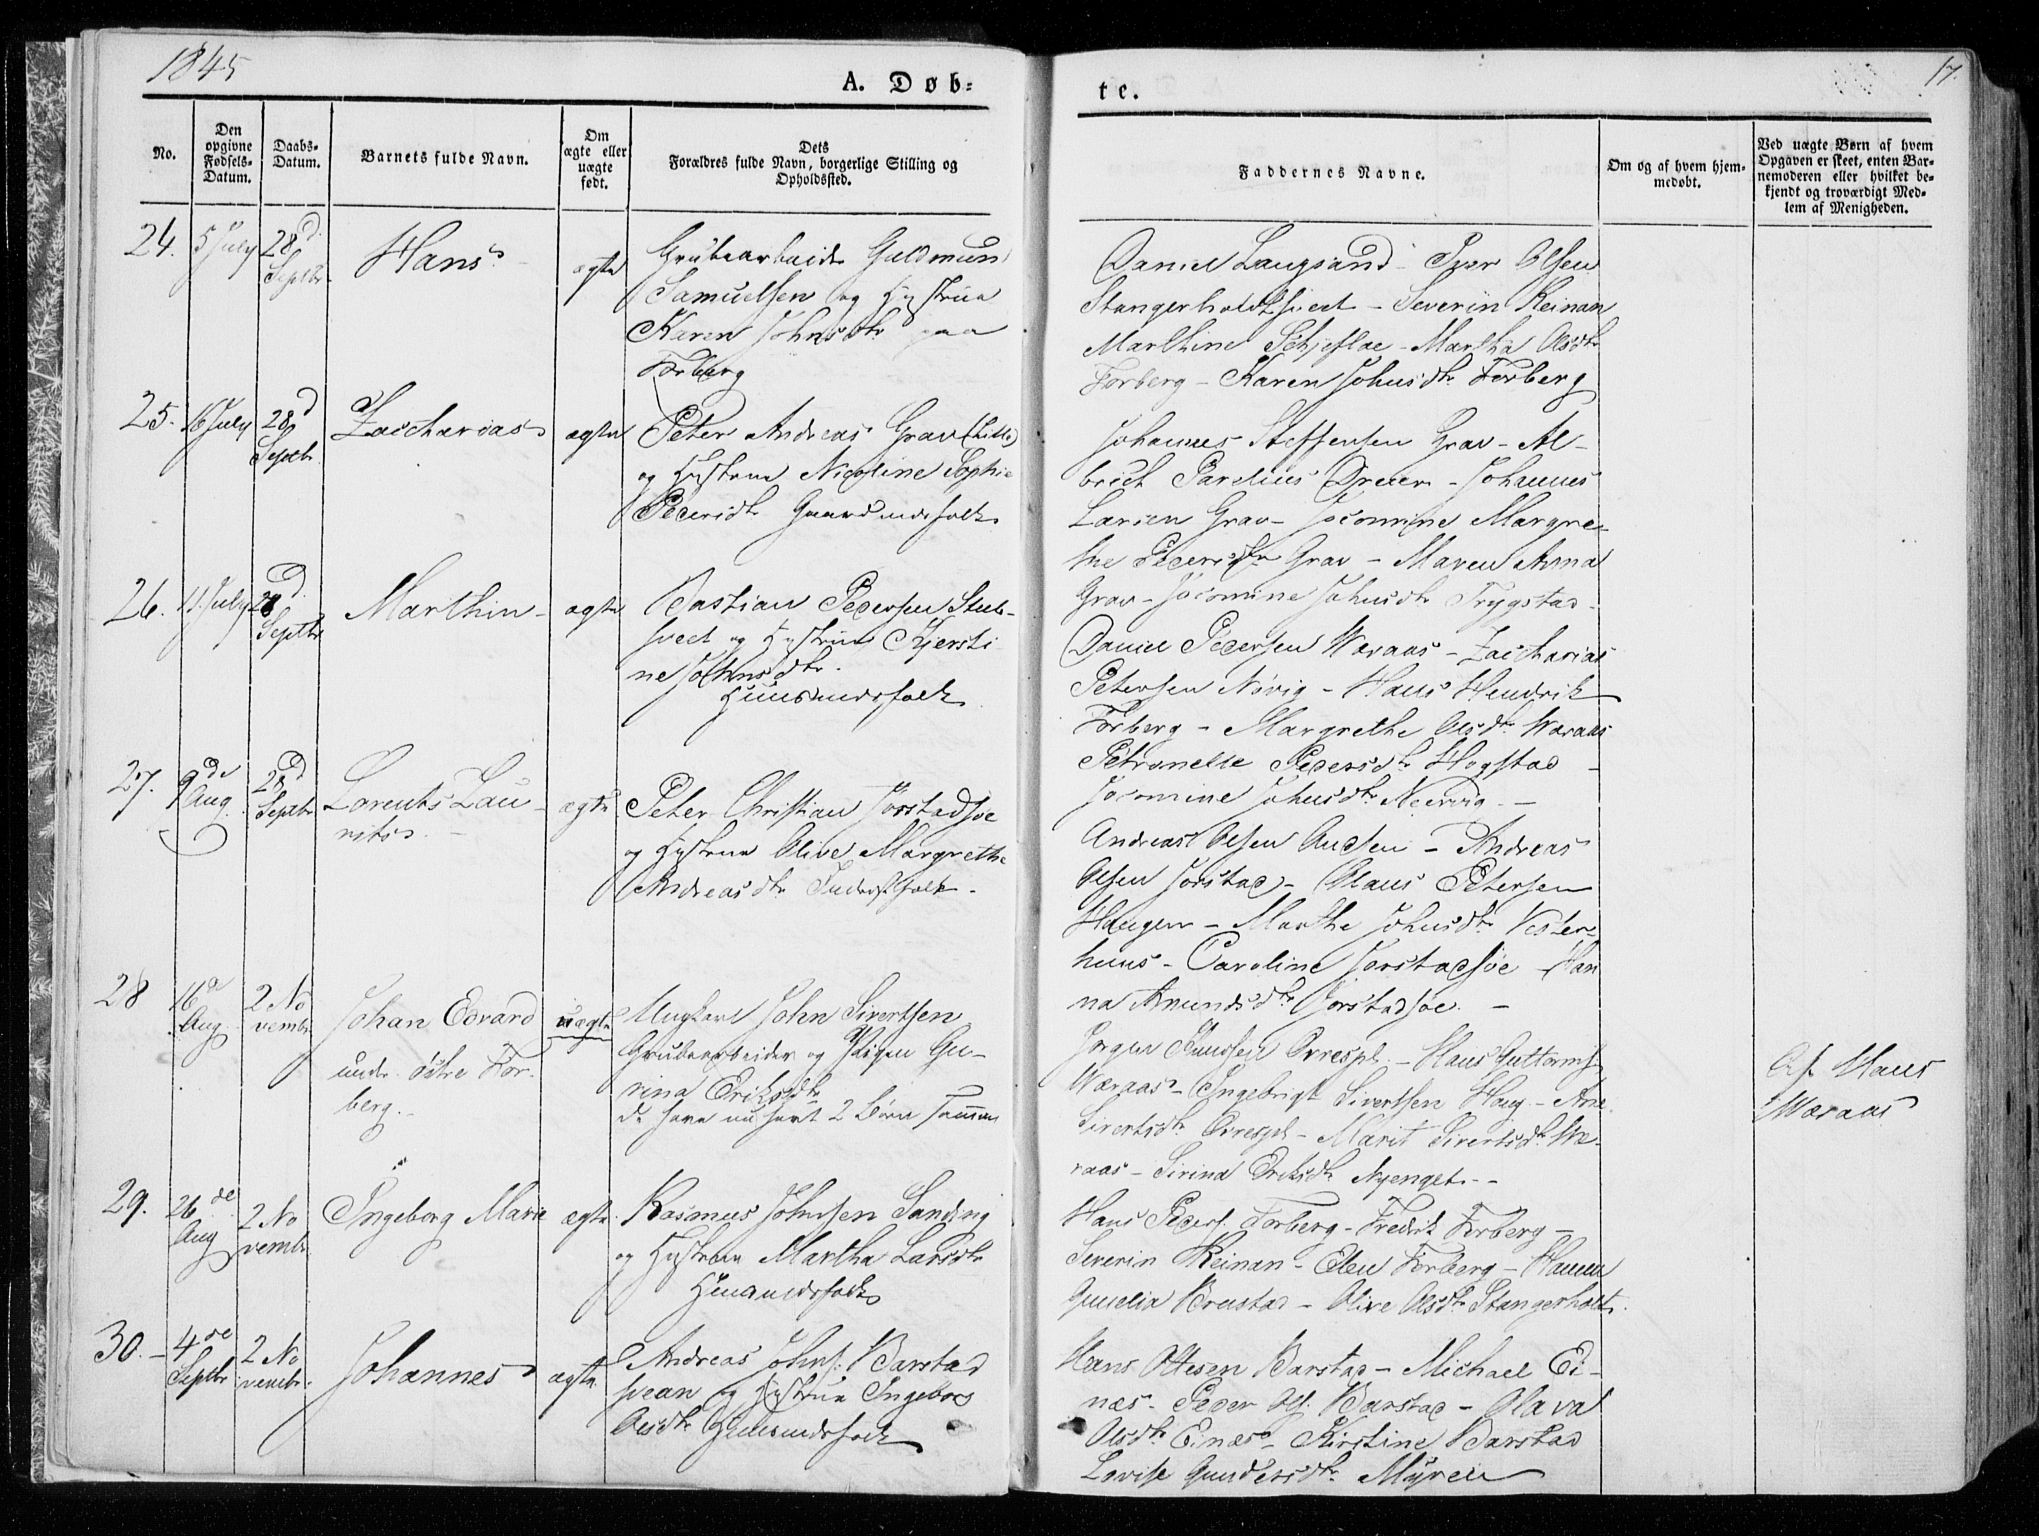 1845
A. Døb-
te.
17.
No.
Den opgivne Fødsels-Datum.
Daabs-Datum.
Barnets fulde Navn.
Om ægte eller uægte født.
Dets Forældres fulde Navn, borgerlige Stilling og Opholdssted.
Faddernes Navne.
Om og af hvem hjem-medøbt.
Ved uægte Børn af hvem Opgaven er skeet, enten Bar-nemoderen eller hvilket be-kjendt og troværdigt Med-lem af Menigheden.
24. 5 July 28d Septbr Hans ægte
Grubearbeider Guldmund
Samuelsen og Hustrue
Karen Johnsdtr paa
Forberg
Daniel Langsand - Peer Olsen
Stangerholdtsveet - Severin Reinan
Marthine Schjeflae - Martha Olsdtr
Forberg - Karen Johnsdtr Forberg
25. 16 July 28d Septbr Zaccharias ægte
Peter Andreas Grav (Lille)
og Hustrue Nicoline Sophie
Pedersdtr Gaardmdsfolk
Johannes Steffensen Grav - Al-
brect Parelius Dreier - Johannes
Larsen Grav - Jocomine Margre-
the Pedersdtr Grav - Maren Anna
Grav - Jocomine Johnsdtr Trygstad
26. 11. July 28d Septbr Marthin - ægte
Bastian Pedersen Stub-
sveet og Hustrue Kjersti-
ne Johnsdtr.
Huusmdsfolk
Daniel Pedersen Wæraas - Zaccharias
Petersen Nøvig - Hans Hendrik
Forberg - Margrethe Olsdtr Wæraas
Petronelle Pedersdtr Hegstad -
Jocomine Johnsdtr Neervig -
27. 9de Aug. 28d Septbr Lorents Lau-
rits. - ægte
Peter Christian Jørstadsøe
og Hustrue Olive Margrethe
Andreasdtr Inderstfolk -
Andreas Olsen Audsen - Andreas
Olsen Jørstad - Claus Petersen
Haugen - Marthe Johnsdtr Vester-
huus - Caroline Jørstadsøe - Han
na Amundsdtr Jørstadsøe. -
28 16d Aug. 2 No vembr Johan Edvard
under østre For-
berg. - uægte
Ungkarl John Sivertsen
Grubearbeider og Pigen Gu-
rina Eriksdtr
de have nu havt 2 Børn sammen
Jørgen Knudsen Ovrespl. - Hans Guttorms.
Wæraas - Ingebrigt Sivertsen Haug - Ane
Sivertsdtr Ovrespl - Marit Sivertsdtr Wæ-
raas - Sirina Eriksdtr Nyenget. -
Af Hans
Wæraas
29. 26de Aug 2 No vembr Ingeborg Marie ægte
Rasmus Johnsen Sanding
og Hustrue Martha Larsdtr
Huusmdsfolk
Hans Peders. Forberg - Fredrik Forberg -
Severin Reinan - Elen Forberg - Hanna
Gunelia Brustad - Olive Olsdtr Stangerholt.
30. - 4de Septbr 2 No vembr. Johannes ægte
Andreas Johns. Barstad
svean og Hustrue Ingeborg
Olsdtr Huusmdsfolk
Hans Ottesen Barstad - Michael Ei-
næs - Peder Ols. Barstad - Olava
Olsdtr Einæs - Kirstine Barstad
Lovise Gundersdtr Myren